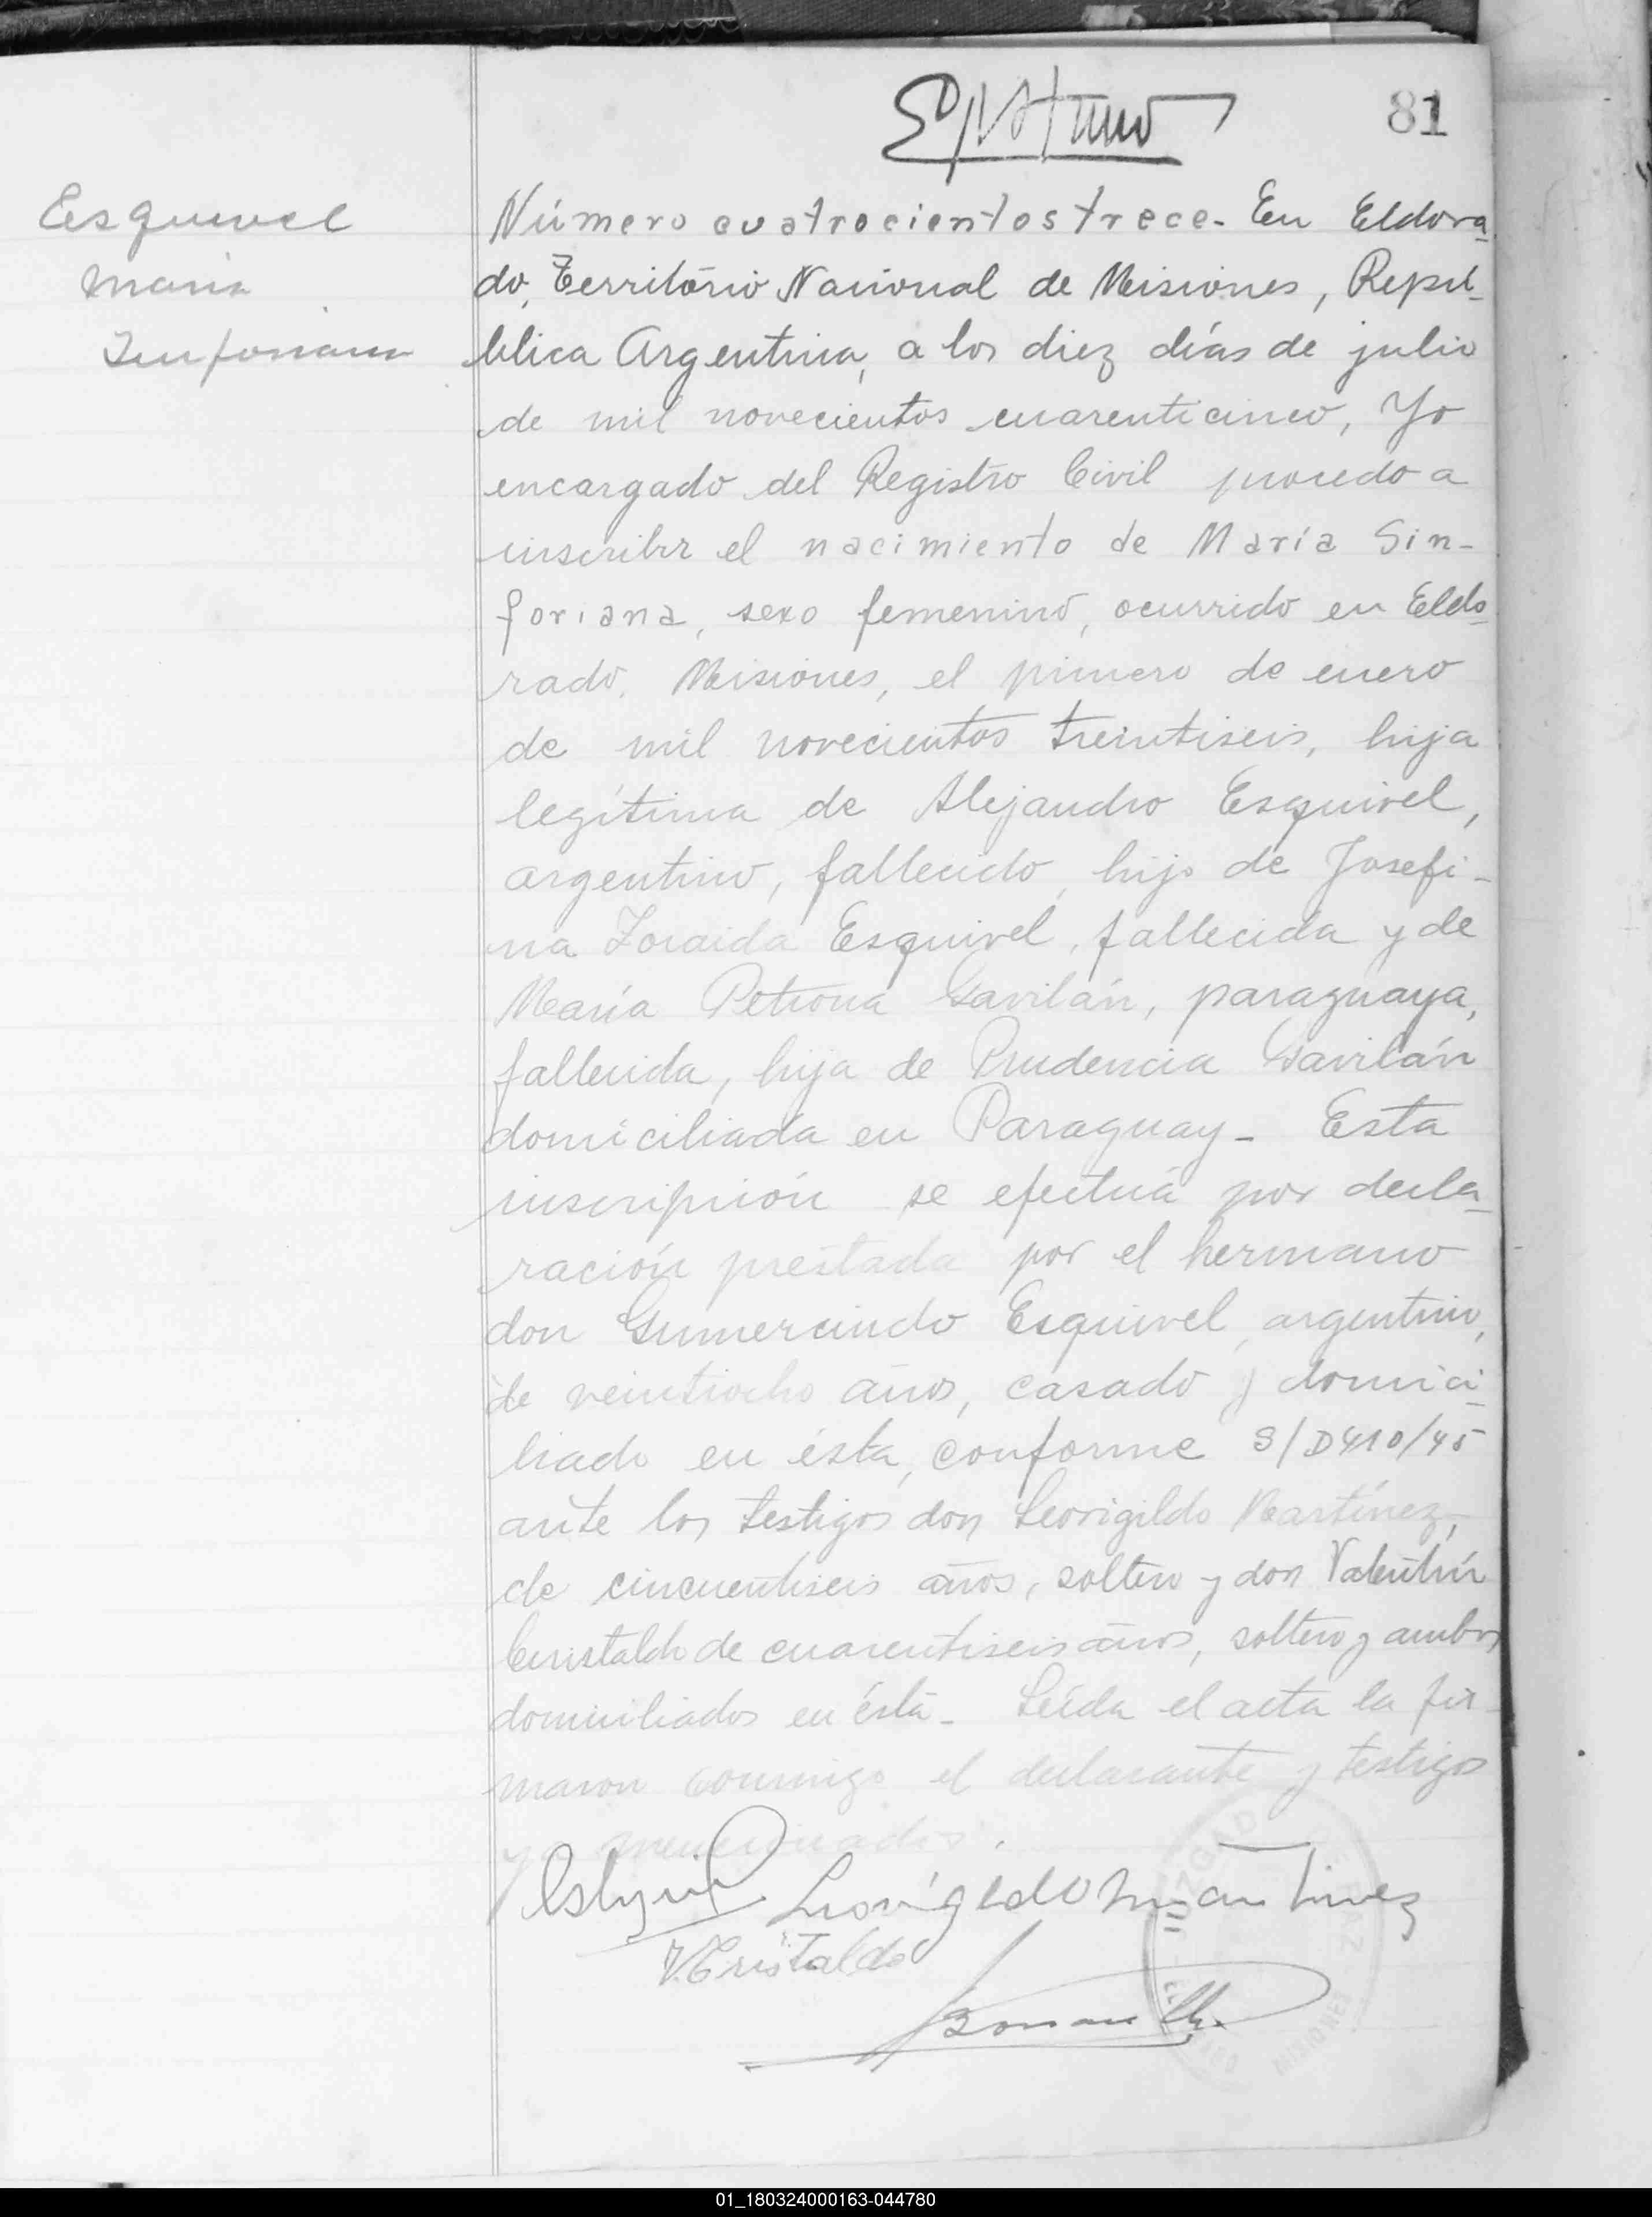 81
Esquivel
Maria
Sinforiana
Número cuatrocientos trece- En Eldora
do, Território Nacional de Misiones, Repú-
blica Argentina, a los diez días de julio
de mil novecientos cuarenticinco, Yo
encargado del Registro Civil procedo a
inscribir el nacimiento de María Sin-
foriana, sexo femenino, ocurrido en Eldo
rado, Misiones, el primero de enero
de mil novecientos treintiseis, hija
legítima de Alejandro Esquivel,
argentino, fallecido, hijo de Josefi-
na Zoraida Esquivel, fallecida y de
María Petrona Gavilán, paraguaya,
fallecida, hija de Prudencia Gavilán
domiciliada en Paraguay- Esta
inscripción se efectúa por decla
ración prestada por el hermano
don Gumercindo Esquivel, argentino,
de veintiocho años, casado y domici
liado en ésta, conforme S/D410/45
ante los testigos don Leovigildo Martínez,
de cincuentiseis años, soltero y don Valentín
Cristaldo de cuarentiseis años, soltero y ambos
domiciliados en ésta- Leída el acta la fir
maron conmigo el declarante y testigos
ya mencionados.
Leovigildo Martinez
V. Cristaldo
JUZGADO DE PAZ
MISIONES
01_180324000163-044780